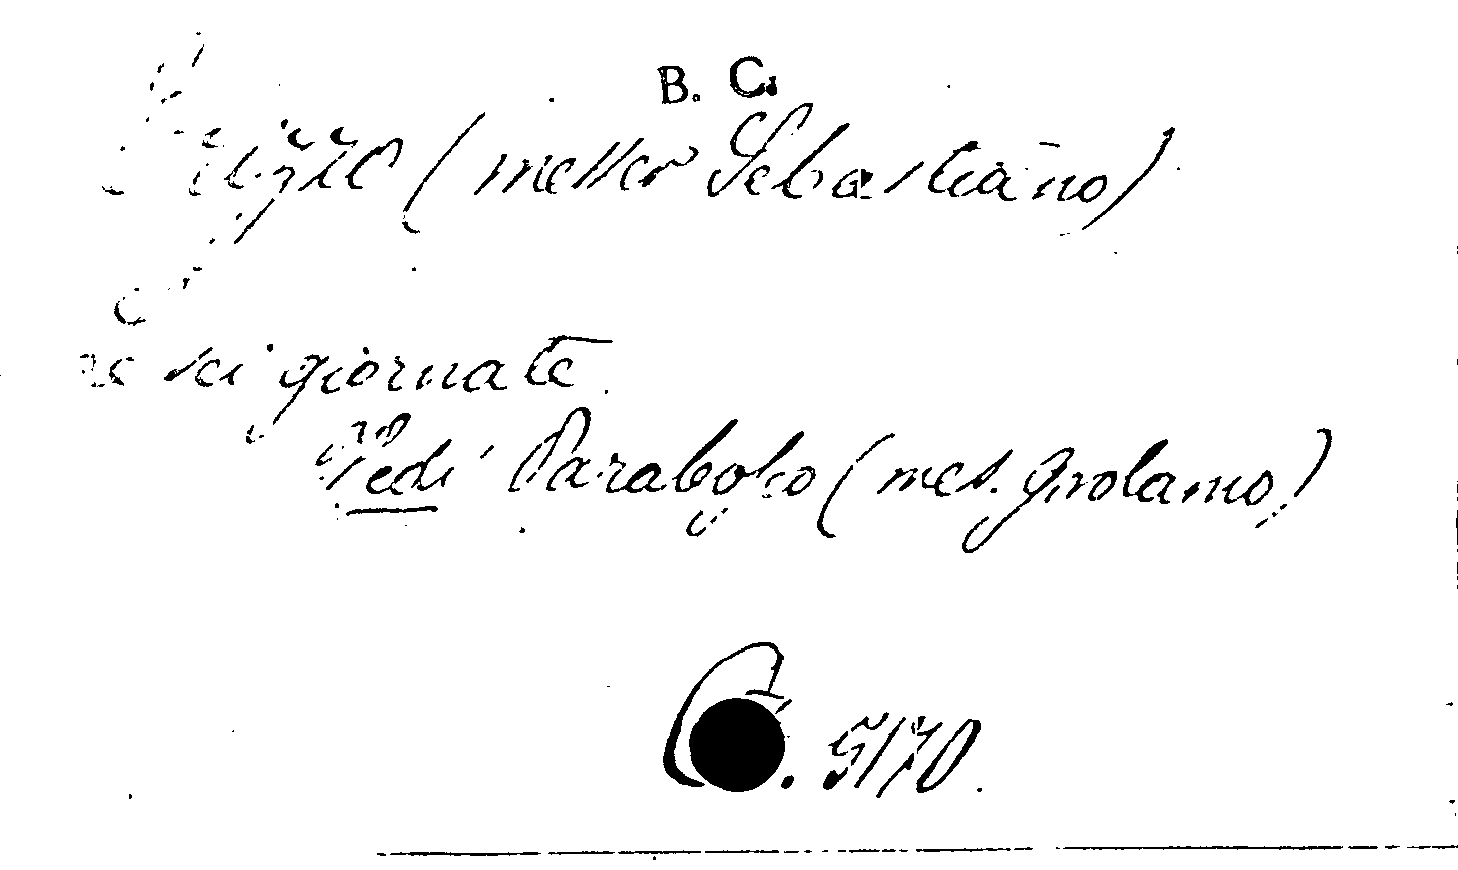 B. C.
Erizzo (messer Sebastiano)
Le sei giornate.
Vedi Parabosco (mes. Girolamo)
5170.